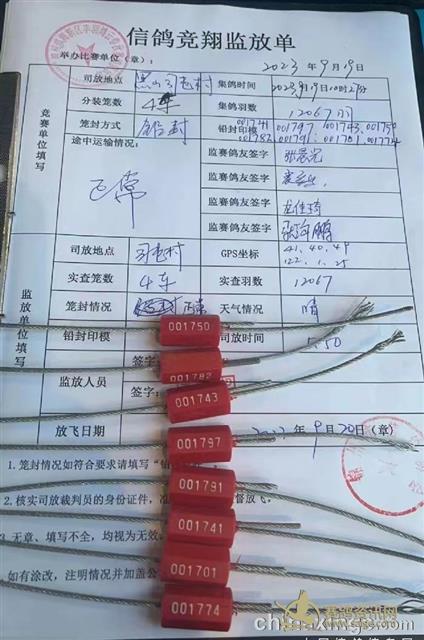 信鸽竞翔监放单
举办比赛单位（章）：
2023年9月19日
司放地点 黑山司屯村 集鸽时间 2023年9月19日10时2分
分装笼数 4车 集鸽羽数 12067羽
笼封方式 铅封 铅封印模 001741 001797 001743 001750
001782 001791 001701 001774
竞赛单位填写
途中运输情况： 正常
监赛鸽友签字
监赛鸽友签字
监赛鸽友签字
监赛鸽友签字
司放地点 司屯村 GPS坐标 41.40.49
122.1.25
实查笼数 4车 实查羽数 12067
监放单位填写
笼封情况 正常 天气情况 晴
铅封印模 司放时间 :50
监放人员 签字：
签字：
放飞日期 年9月20日（章）
001750
001782
001743
001797
001791
001741
001701
001774
1.笼封情况如符合要求请填写“铅
2.核实司放裁判员的身份证件，准 督放飞。
3.无章、填写不全，均视为无效
如有涂改，注明情况并加盖公
赛鸽资讯网